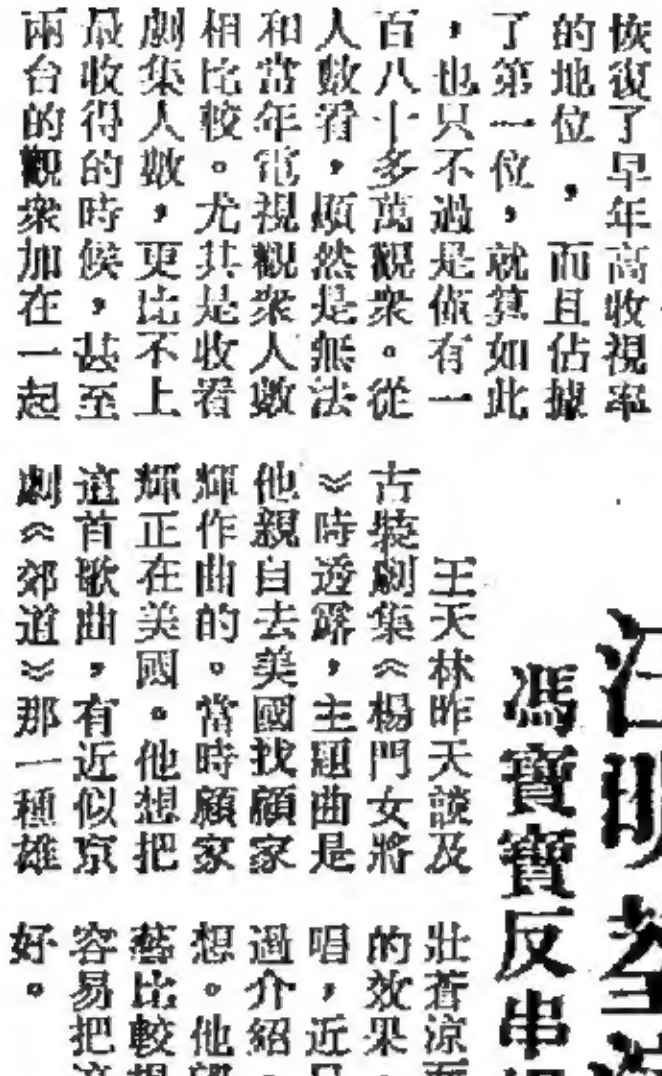 恢復了早年高收視率
的地位，而且佔據
了第一位，就算如此
，也只不過是僅有一
百八十多萬觀衆。從
人數看，顯然是無法
和當年電視觀衆人數
相比較。尤其是收看
劇集人數，更比不上
最收得的時候，甚至
兩台的觀衆加在一起
汪明荃
馮寶寶反串
王天林昨天談及
古裝劇集《楊門女將
》時透露，主題曲是
他親自去美國找顧家
輝作曲的。當時顧家
輝正在美國。他想把
這首歌曲，有近似京
劇《郊道》那一種雄
壯蒼涼
的效果
唱，近
過介紹
想。他
藝比較
容易把
好。